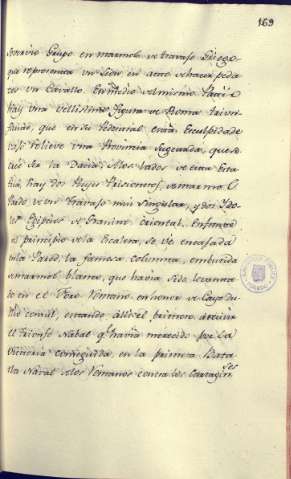 169
Grupo en marmol de travajo Griego,
que representa un Leon en acto de hacer peda-
zos un Cavallo. En medio del mismo Patio
hay una vellissima figura de Roma triun-
fante, que en su Pedestal está esculpida de
vajo relieve una Provincia Sugetada, que se
cree sea la Dacia. A los lados de esta Esta-
tua, hay dos Reyes Prisioneros, de marmol
de un travajo mui singular, y dos Ydo-
los Egipcios de Granito oriental. Enfrente
al principio de la Escalera, se ve encajada
en la Pared la famosa columna, embutida
de marmol blanco, que havia sido levanta-
da en el Foro Romano en honor de Cayo Du-
ilio consul, estando allí el primero
el Triunfo Naval q.e havia merecido por la
victoria conseguida, en la primera Bata-
lla Naval de los Romanos contra los Cartagin.ses